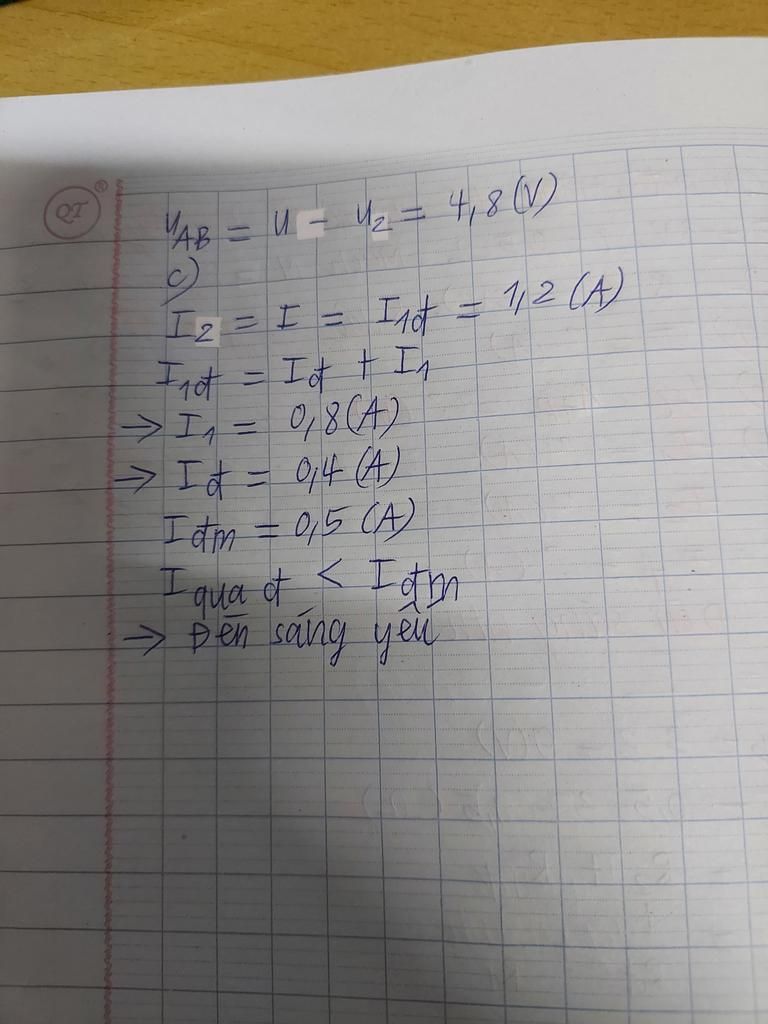 QT ®
U_AB = U - U_2 = 4,8 (V)
c)
I_2 = I = I_1đ = 1,2 (A)
I_1đ = I_đ + I_1
→ I_1 = 0,8 (A)
→ I_đ = 0,4 (A)
I_đm = 0,5 (A)
I_qua đ < I_đm
→ Đèn sáng yếu